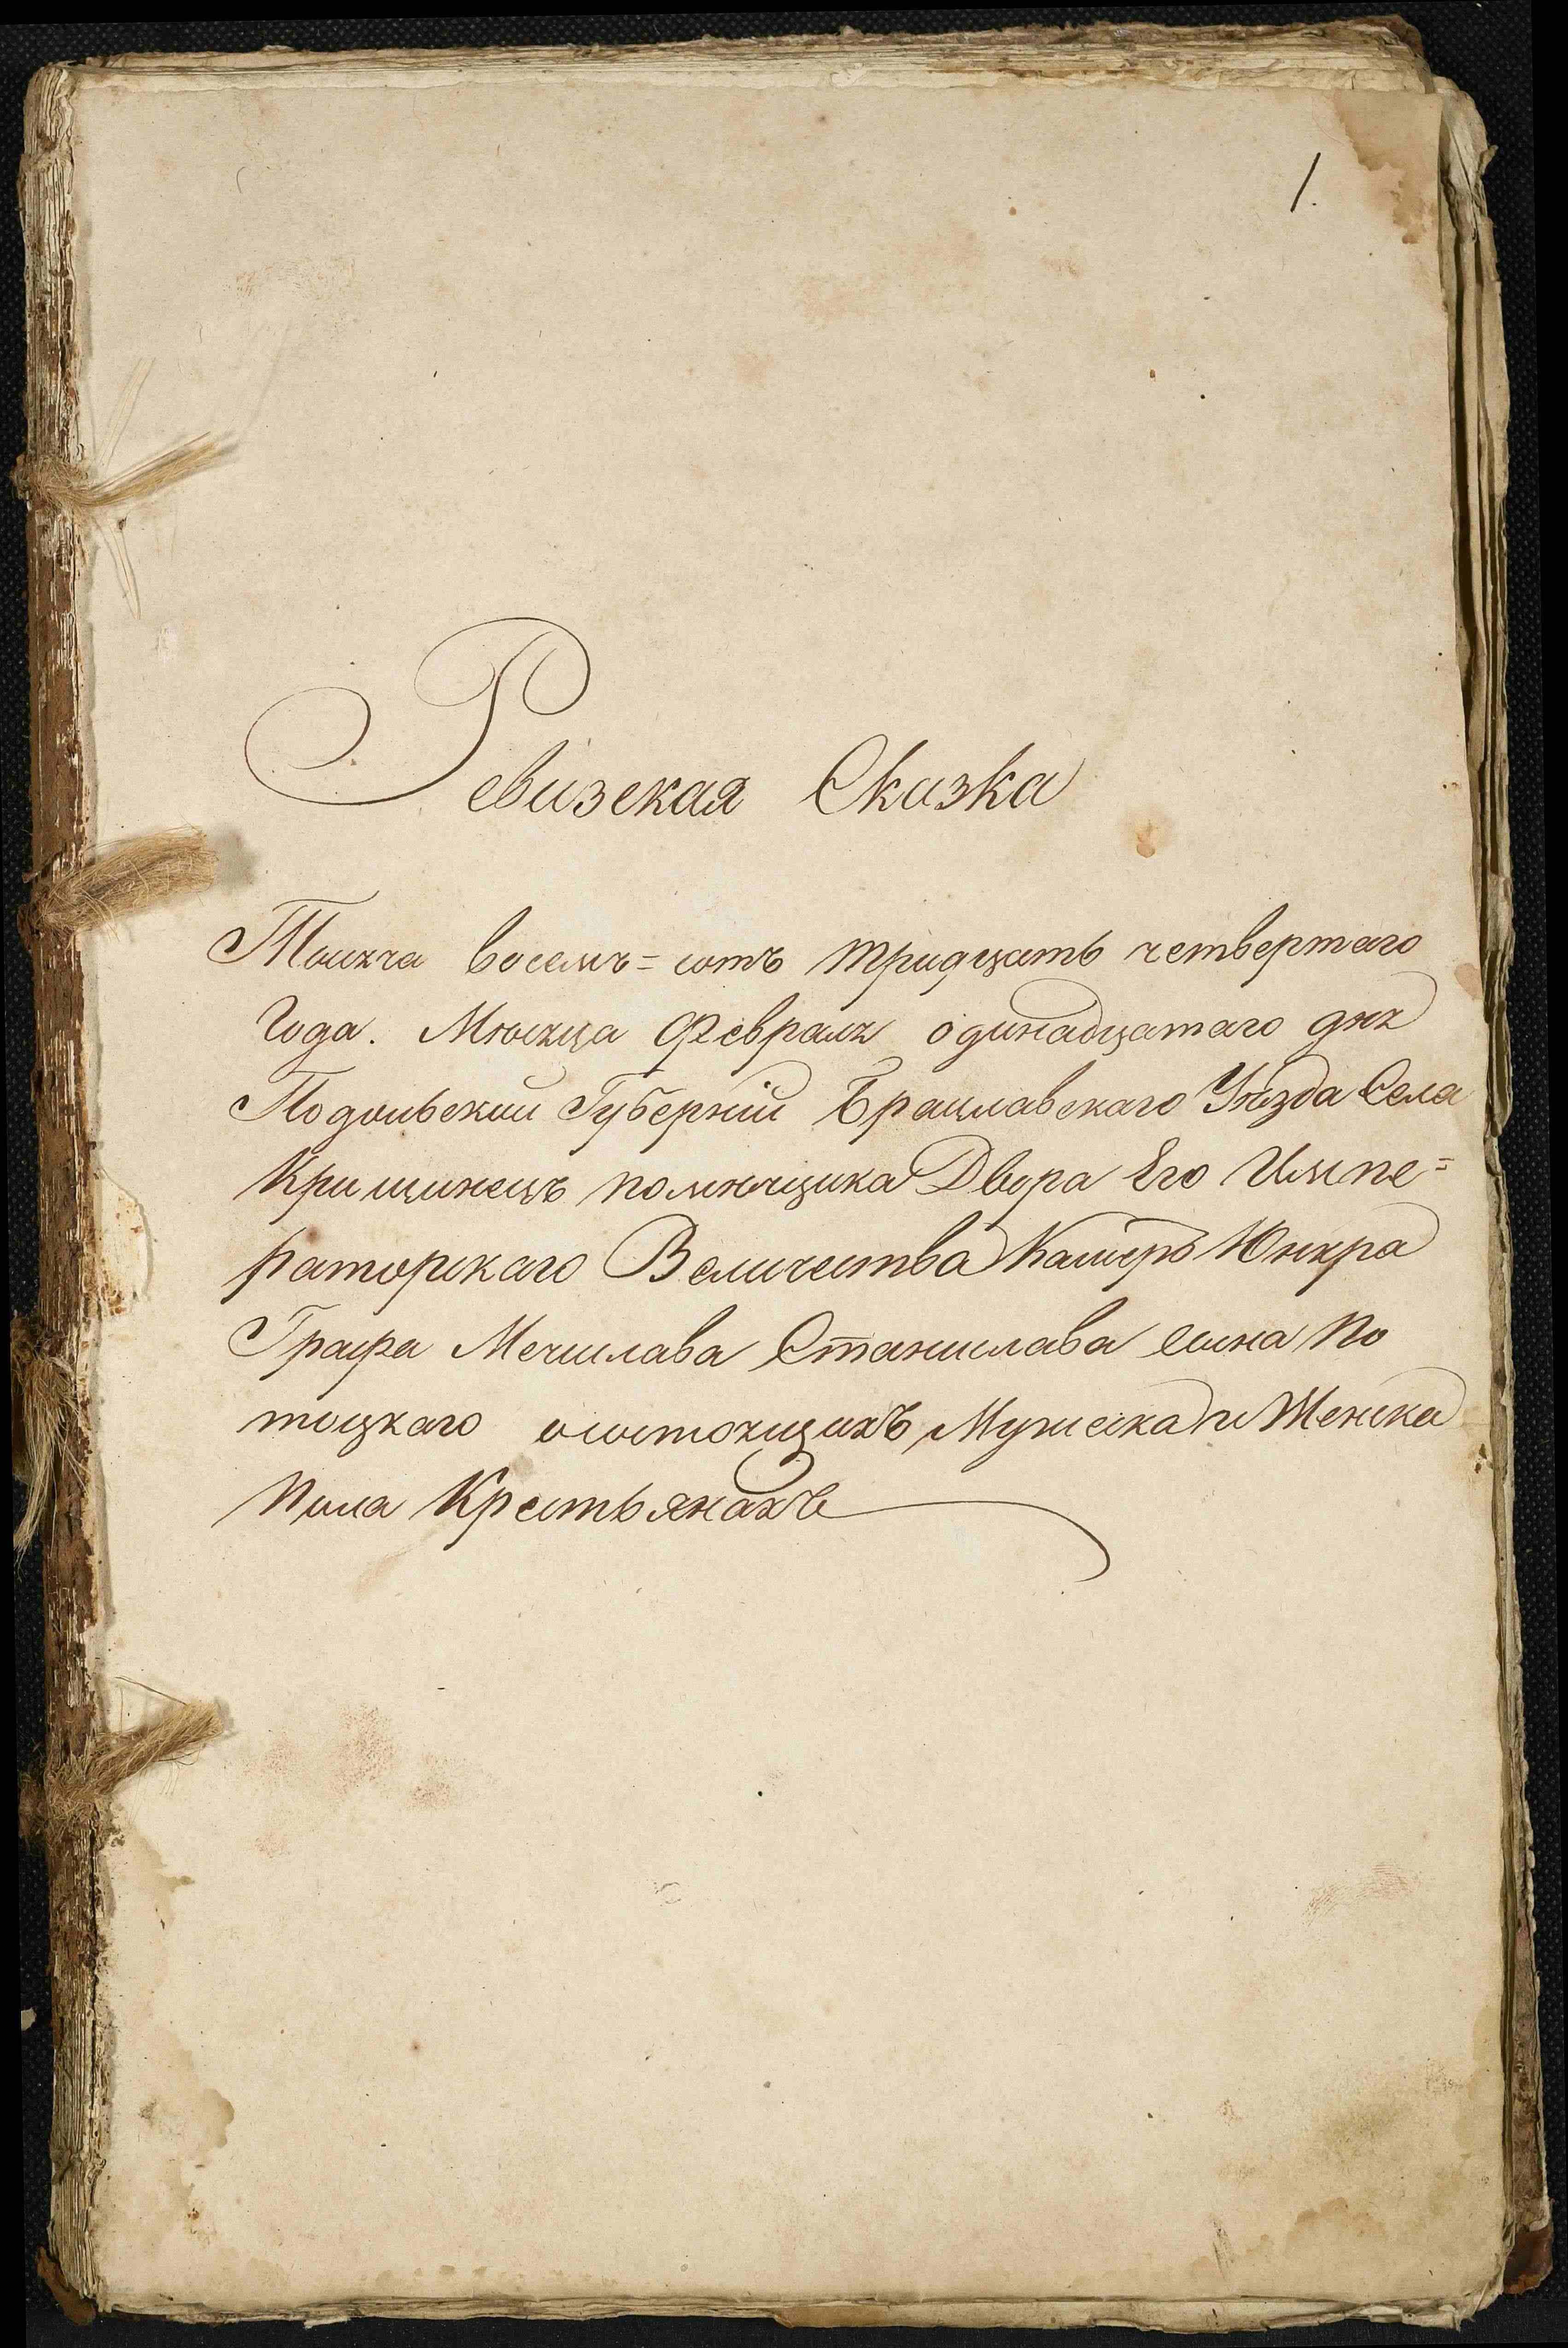 1.
Ревизская Сказка
Тысяча восемъ=сотъ тридцать четвертаго
Года. Мѣсяца Февраля одинадцатаго дня
Подольской Губерніи Брацлавскаго Уѣзда Села
Крищинецъ помѣщика Двора Его Импе=
раторскаго Величества Камеръ Юнкра
Графа Мечислава Станислава сына По
тоцкаго осостоящихъ Мужеска и Женска
пола Крестьянахъ